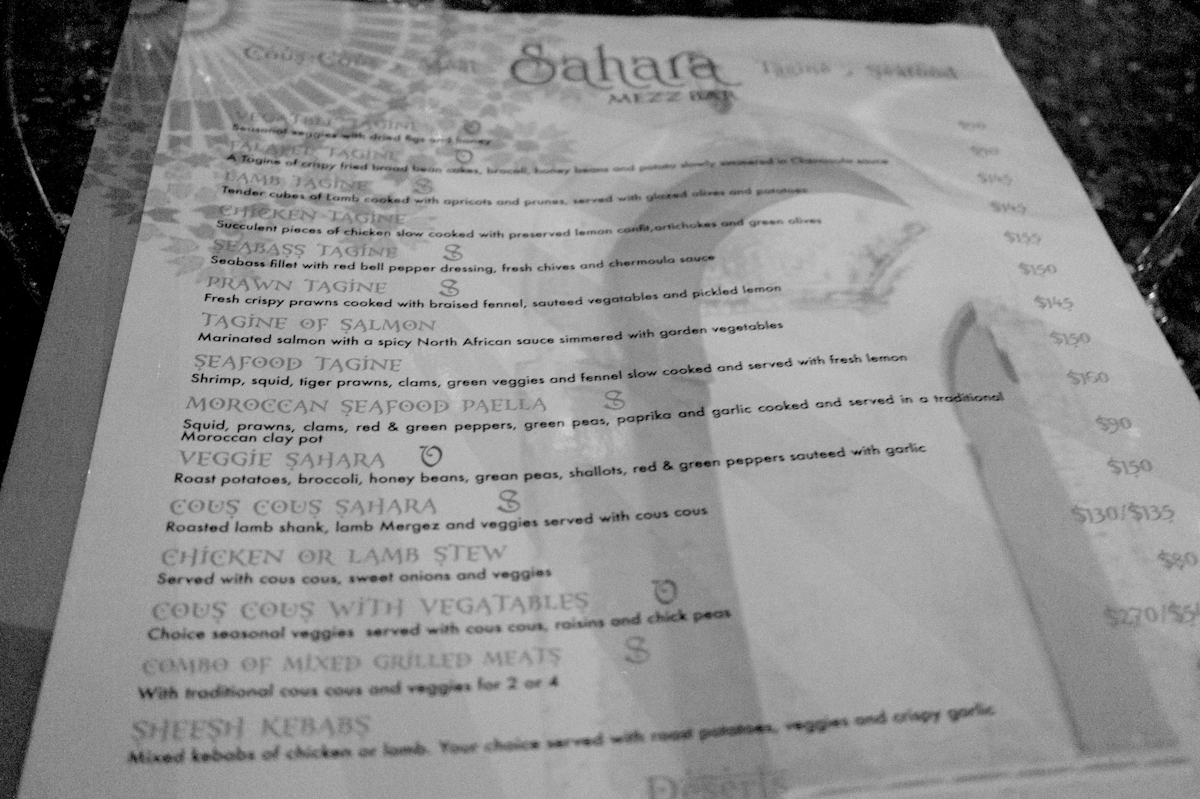 Cous Cous, Meat
Sahara
Tagine, Seafood
MEZZ BAR
TAGINE
Seasonal veggies with dried figs and honey
FALAFEL TAGINE
A Tagine of crispy fried broad bean cakes, brocoli, honey beans and potato slowly simmered in Charmoula sauce
$145
LAMB TAGINE S
Tender cubes of Lamb cooked with apricots and prunes, served with glazed olives and potatoes
$145
CHICKEN TAGINE
Succulent pieces of chicken slow cooked with preserved lemon confit,artichokes and green olives
$155
SEABASS TAGINE S
Seabass fillet with red bell pepper dressing, fresh chives and chermoula sauce
$150
PRAWN TAGINE S
Fresh crispy prawns cooked with braised fennel, sauteed vegatables and pickled lemon
$145
TAGINE OF SALMON
Marinated salmon with a spicy North African sauce simmered with garden vegetables
$150
SEAFOOD TAGINE
Shrimp, squid, tiger prawns, clams, green veggies and fennel slow cooked and served with fresh lemon
MOROCCAN SEAFOOD PAELLA S
Squid, prawns, clams, red & green peppers, green peas, paprika and garlic cooked and served in a traditional
Moroccan clay pot
$90
VEGGIE SAHARA
Roast potatoes, broccoli, honey beans, grean peas, shallots, red & green peppers sauteed with garlic
$150
COUS COUS SAHARA S
Roasted lamb shank, lamb Mergez and veggies served with cous cous
$130/$135
CHICKEN OR LAMB STEW
Served with cous cous, sweet onions and veggies
$80
COUS COUS WITH VEGATABLES
Choice seasonal veggies served with cous cous, raisins and chick peas
$270/$5
COMBO OF MIXED GRILLED MEATS S
With traditional cous cous and veggies for 2 or 4
SHEESH KEBABS
Mixed kebabs of chicken or lamb. Your choice served with roast potatoes, veggies and crispy garlic
Deserts